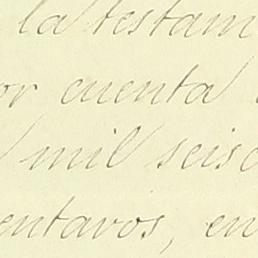 la testam
or cuenta
mil seisc
entavos, en